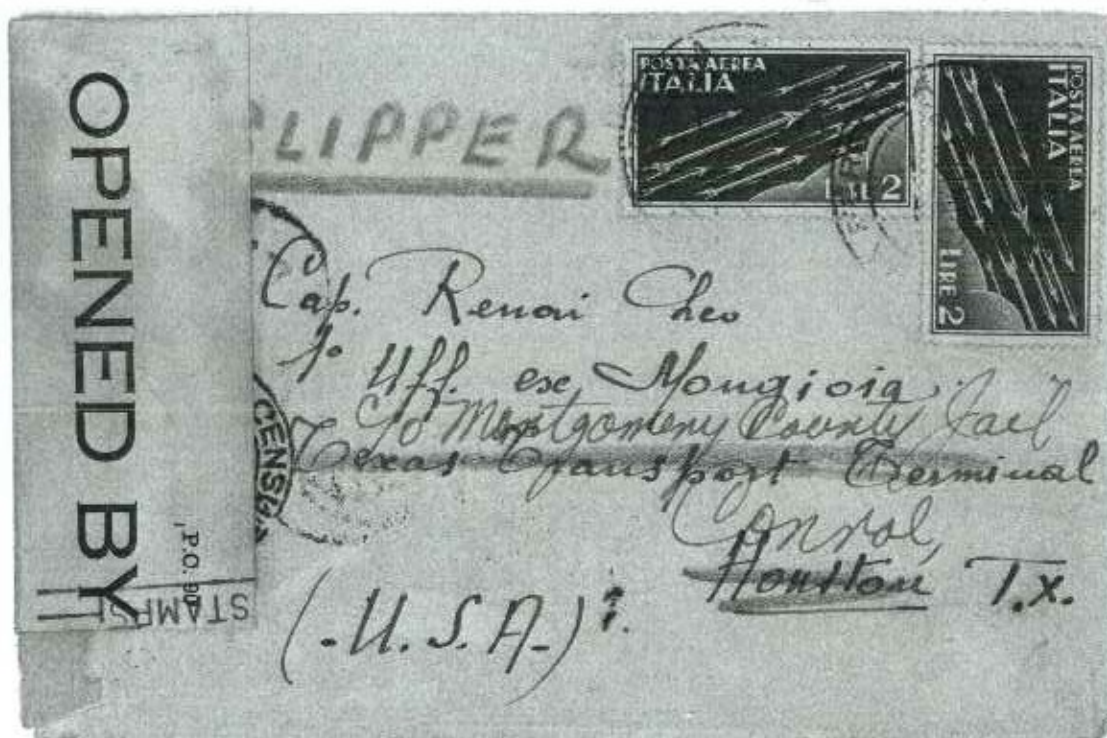 OPENED BY
P.O. 90
STAMPS
CLIPPER
POSTA AEREA
ITALIA
LIRE 2
POSTA AEREA
ITALIA
LIRE 2
Cap. Renai Cleo
1º Uff. ex Mongioia
c/o Montgomery County Jail
Texas Transport Terminal
Conroe,
Houston T.x.
(-U.S.A-)
CENSU